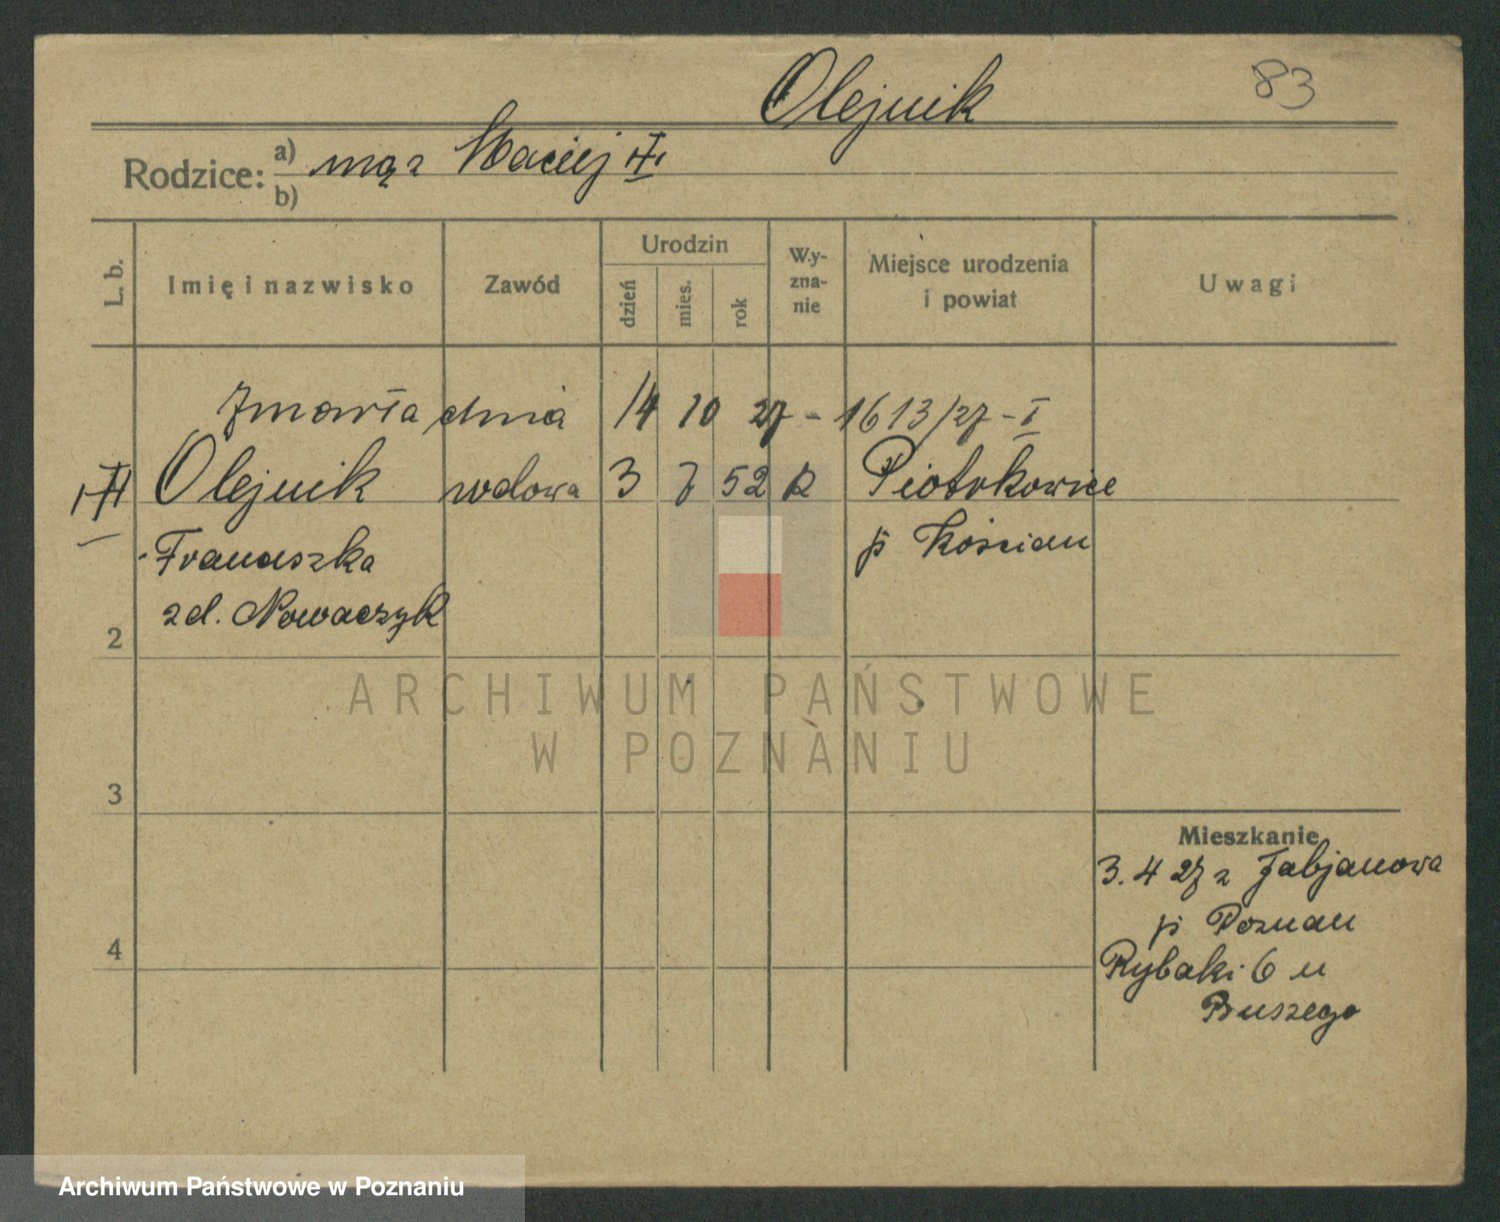 Olejnik 83
Rodzice: a) mąż Maciej
b)
L. b. Imię i nazwisko Zawód Urodzin dzień mies. rok Wyznanie Miejsce urodzenia i powiat Uwagi
Zmarła dnia 14 10 27 - 1613/27 - I
Olejnik wdowa 3 52 R Piotrkowice
Franciszka p Kościan
zd. Nowaczyk
2
ARCHIWUM PAŃSTWOWE
W POZNANIU
3
Mieszkanie
3. 4 27 z Fabjanowa
p Poznań
4
Rybaki 6 u
Buszego
Archiwum Państwowe w Poznaniu